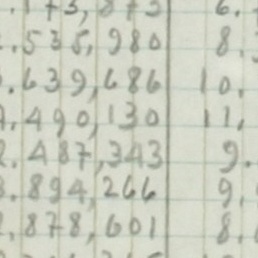 .535,980 8.
.639,686 10.
.490,130 11.
.487,343 9.
.894,266 9.
.878,601 8.